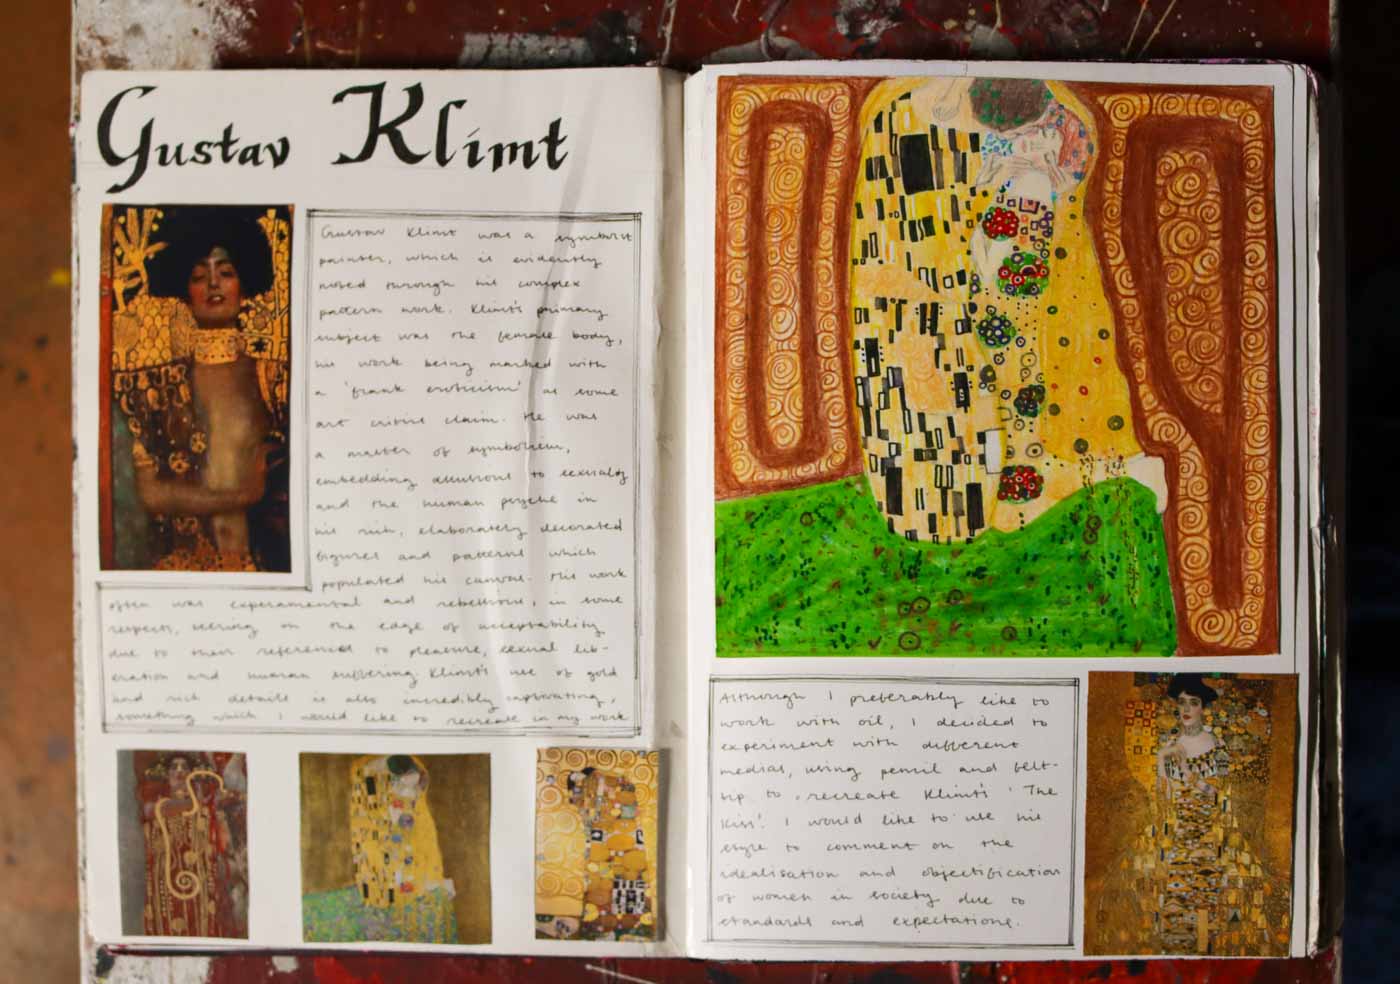 Gustav Klimt
Gustav Klimt was a symbolist
painter, which is evidently
noted through his complex
pattern work. Klimt's primary
subject was the female body,
his work being marked with
a 'frank eroticism' as some
art critics claim. He was
a master of symbolism,
embedding allusions to sexuality
and the human psyche in
his rich, elaborately decorated
figures and patterns which
populated his canvas. His work
often was experamental and rebellious, in some
respects, teering on the edge of acceptability
due to their references to pleasure, sexual lib-
eration and human suffering. Klimt's use of gold
and rich details is also incredibly captivating,
something which I would like to recreate in my work
Although I preferably like to
work with oil, I decided to
experiment with different
medias, using pencil and felt-
tip to recreate Klimt's 'The
Kiss'. I would like to use his
style to comment on the
idealisation and objectification
of women in society due to
standards and expectations.